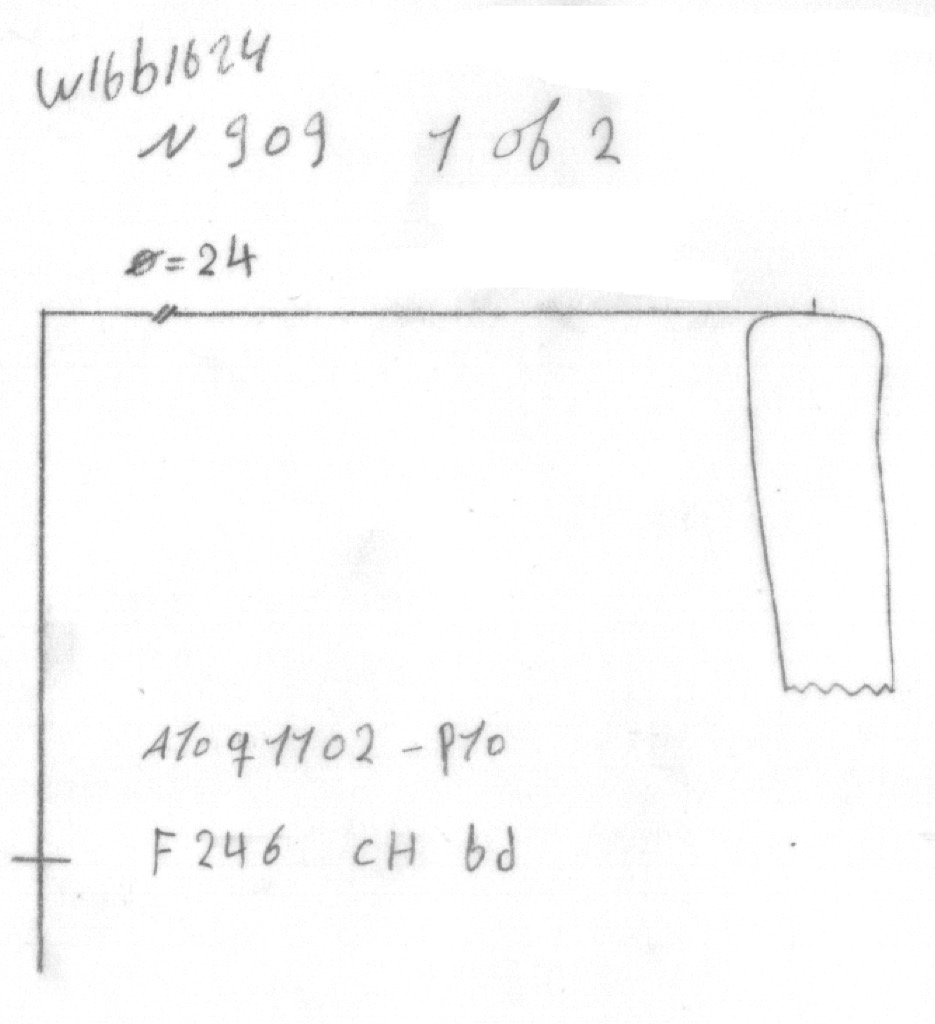 W16b1624
N 909 1 of 2
ø=24
A10q1102-p10
F246 cH bd